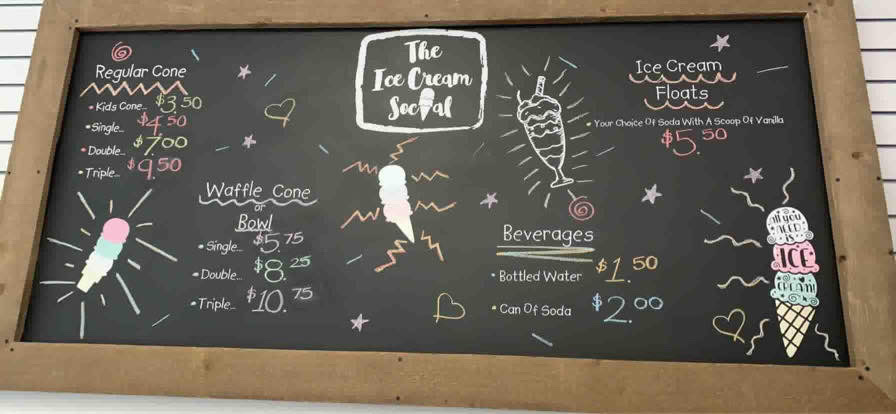 The
Ice Cream
Social
Regular Cone
• Kids Cone... $3.50
• Single... $4.50
• Double... $7.00
• Triple... $9.50
Waffle Cone
or
Bowl
• Single... $5.75
• Double... $8.25
• Triple... $10.75
Ice Cream
Floats
• Your Choice Of Soda With A Scoop Of Vanilla
$5.50
Beverages
• Bottled Water $1.50
• Can Of Soda $2.00
all you
NEED
is
ICE
CREAM